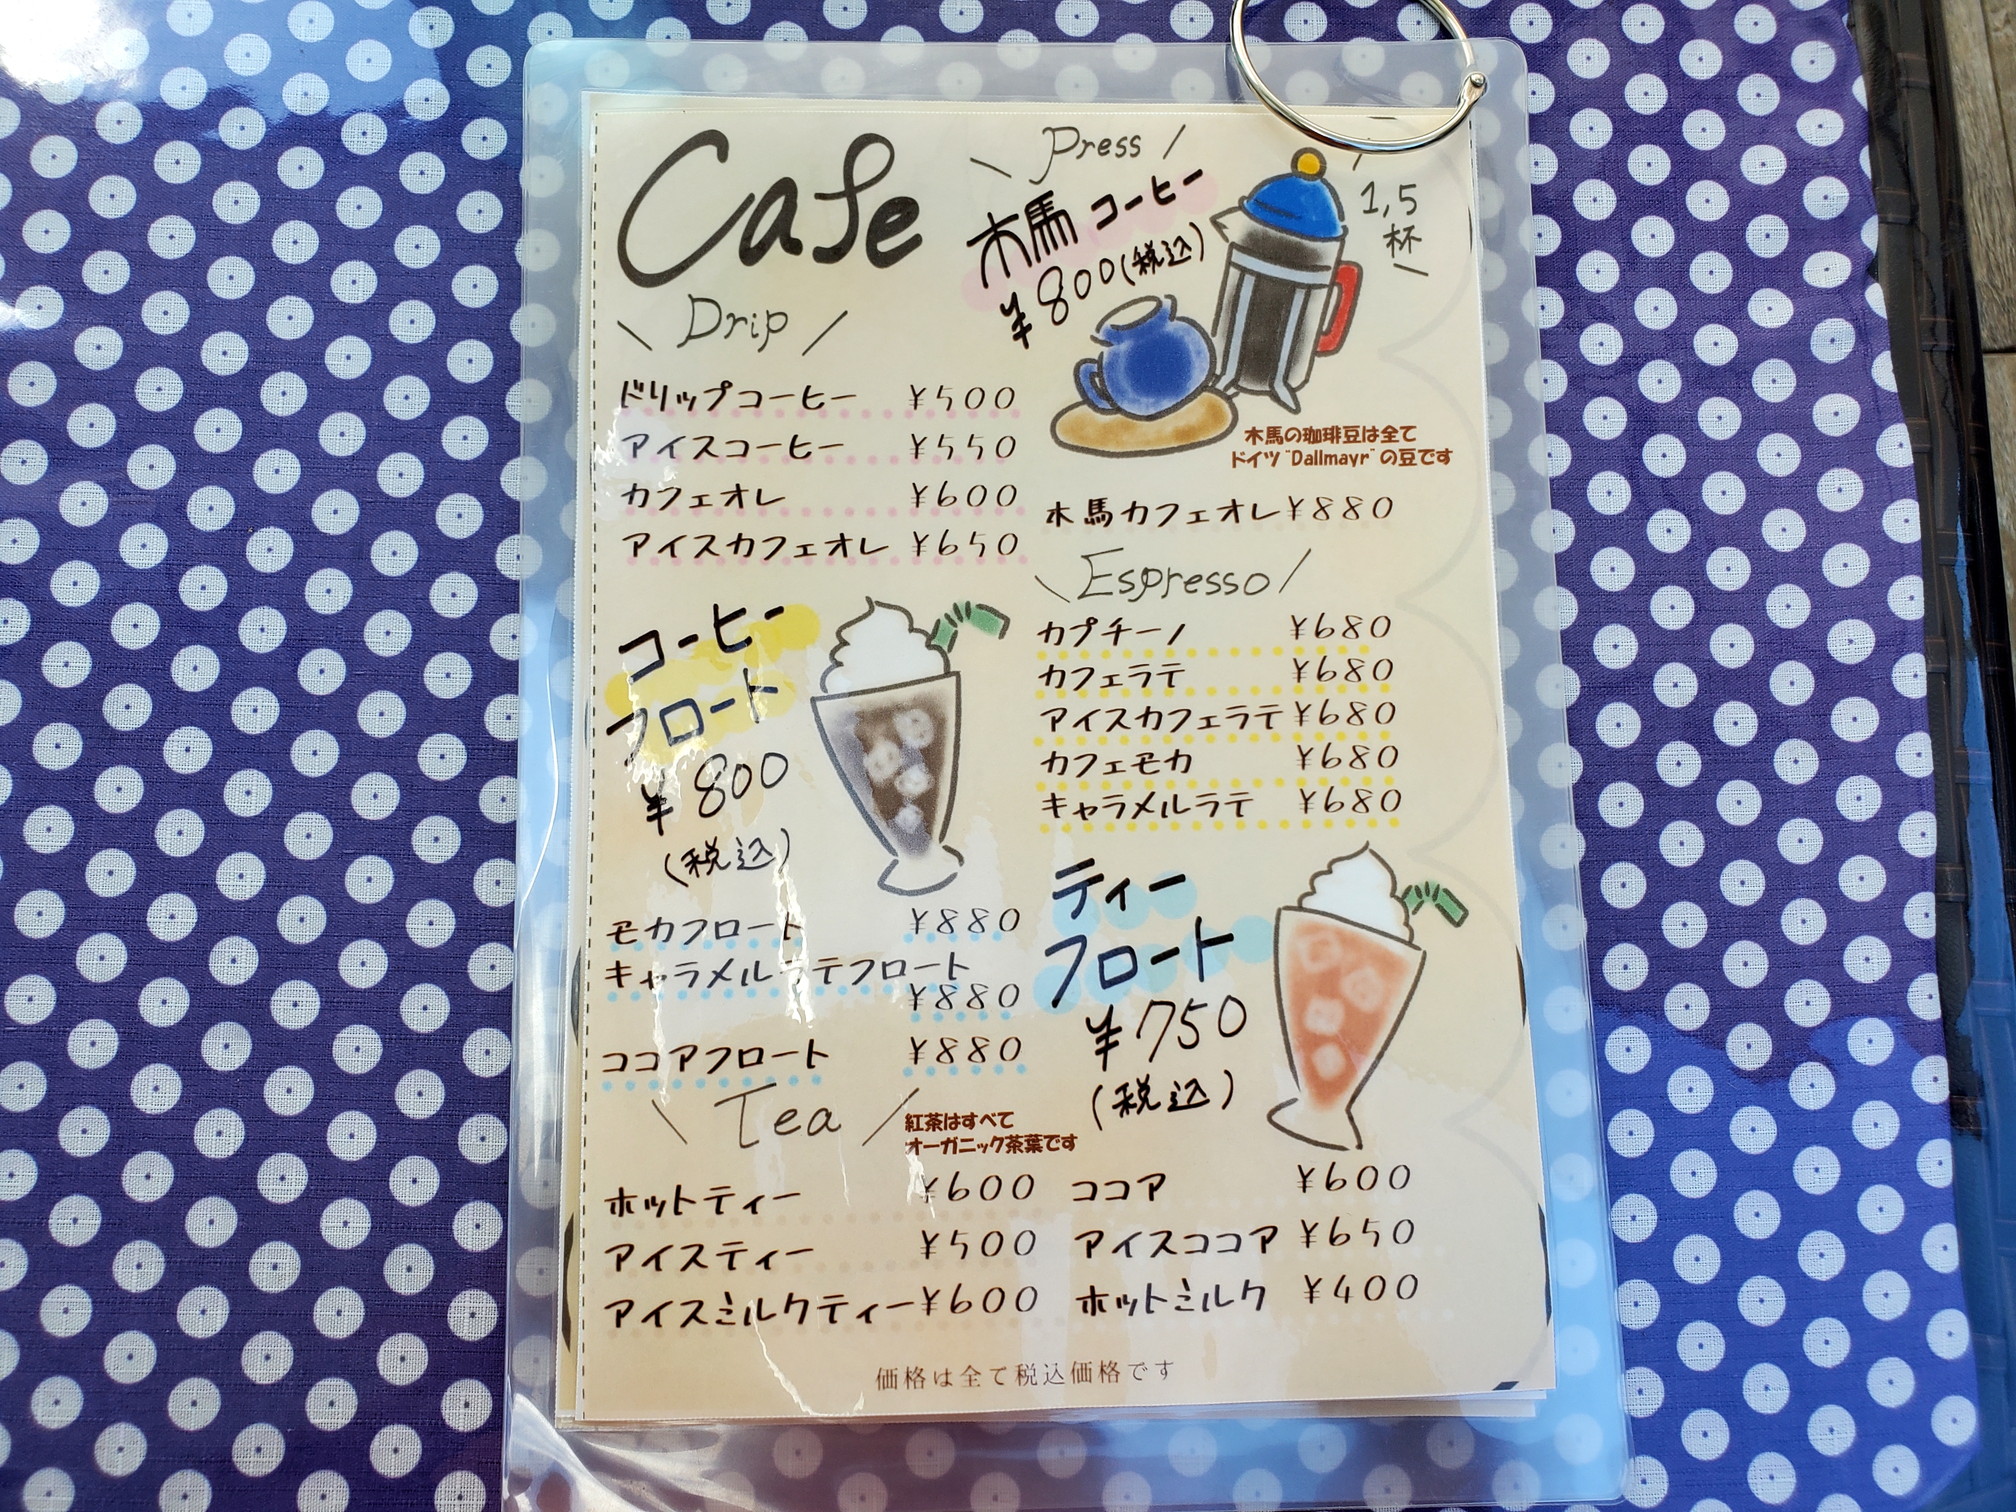 Cafe
Press
木馬 コーヒー
¥800(税込)
1,5
杯
Drip
ドリップコーヒー ¥500
アイスコーヒー ¥550
カフェオレ ¥600
アイスカフェオレ ¥650
木馬の珈琲豆は全て
ドイツ"Dallmayr"の豆です
木馬カフェオレ ¥880
Espresso
カプチーノ ¥680
カフェラテ ¥680
アイスカフェラテ ¥680
カフェモカ ¥680
キャラメルラテ ¥680
コーヒー
フロート
¥800
(税込)
モカフロート ¥880
キャラメルラテフロート
¥880
ココアフロート ¥880
ティー
フロート
¥750
(税込)
Tea
紅茶はすべて
オーガニック茶葉です
ホットティー ¥600
アイスティー ¥500
アイスミルクティー ¥600
ココア ¥600
アイスココア ¥650
ホットミルク ¥400
価格は全て税込価格です